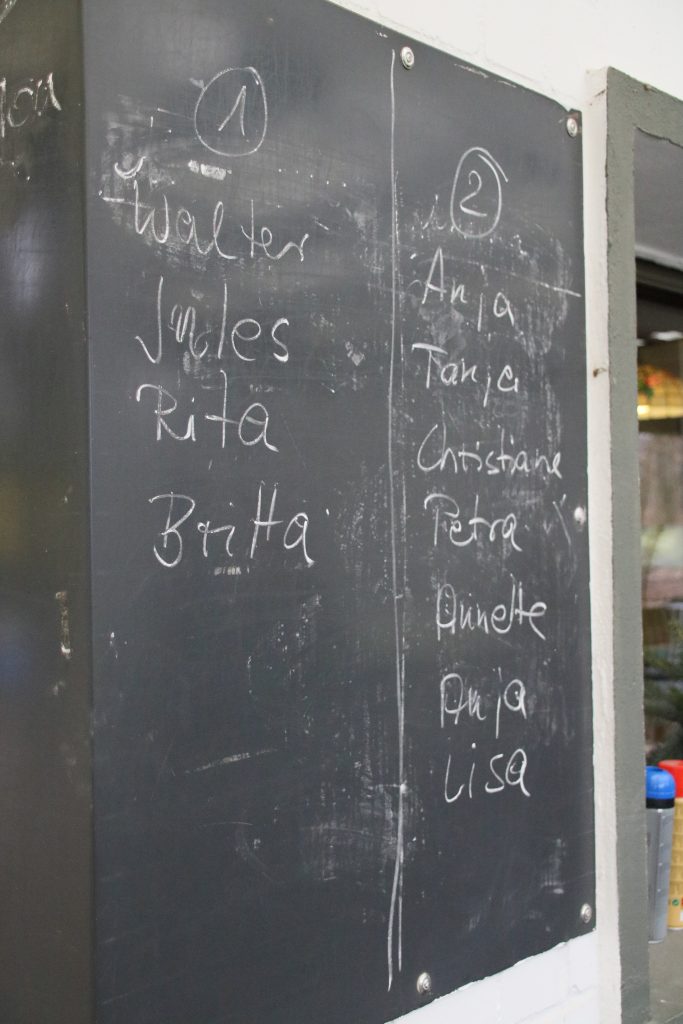 1
Walter
Jules
Rita
Britta
2
Anja
Tanja
Christiane
Petra
Annette
Anja
Lisa